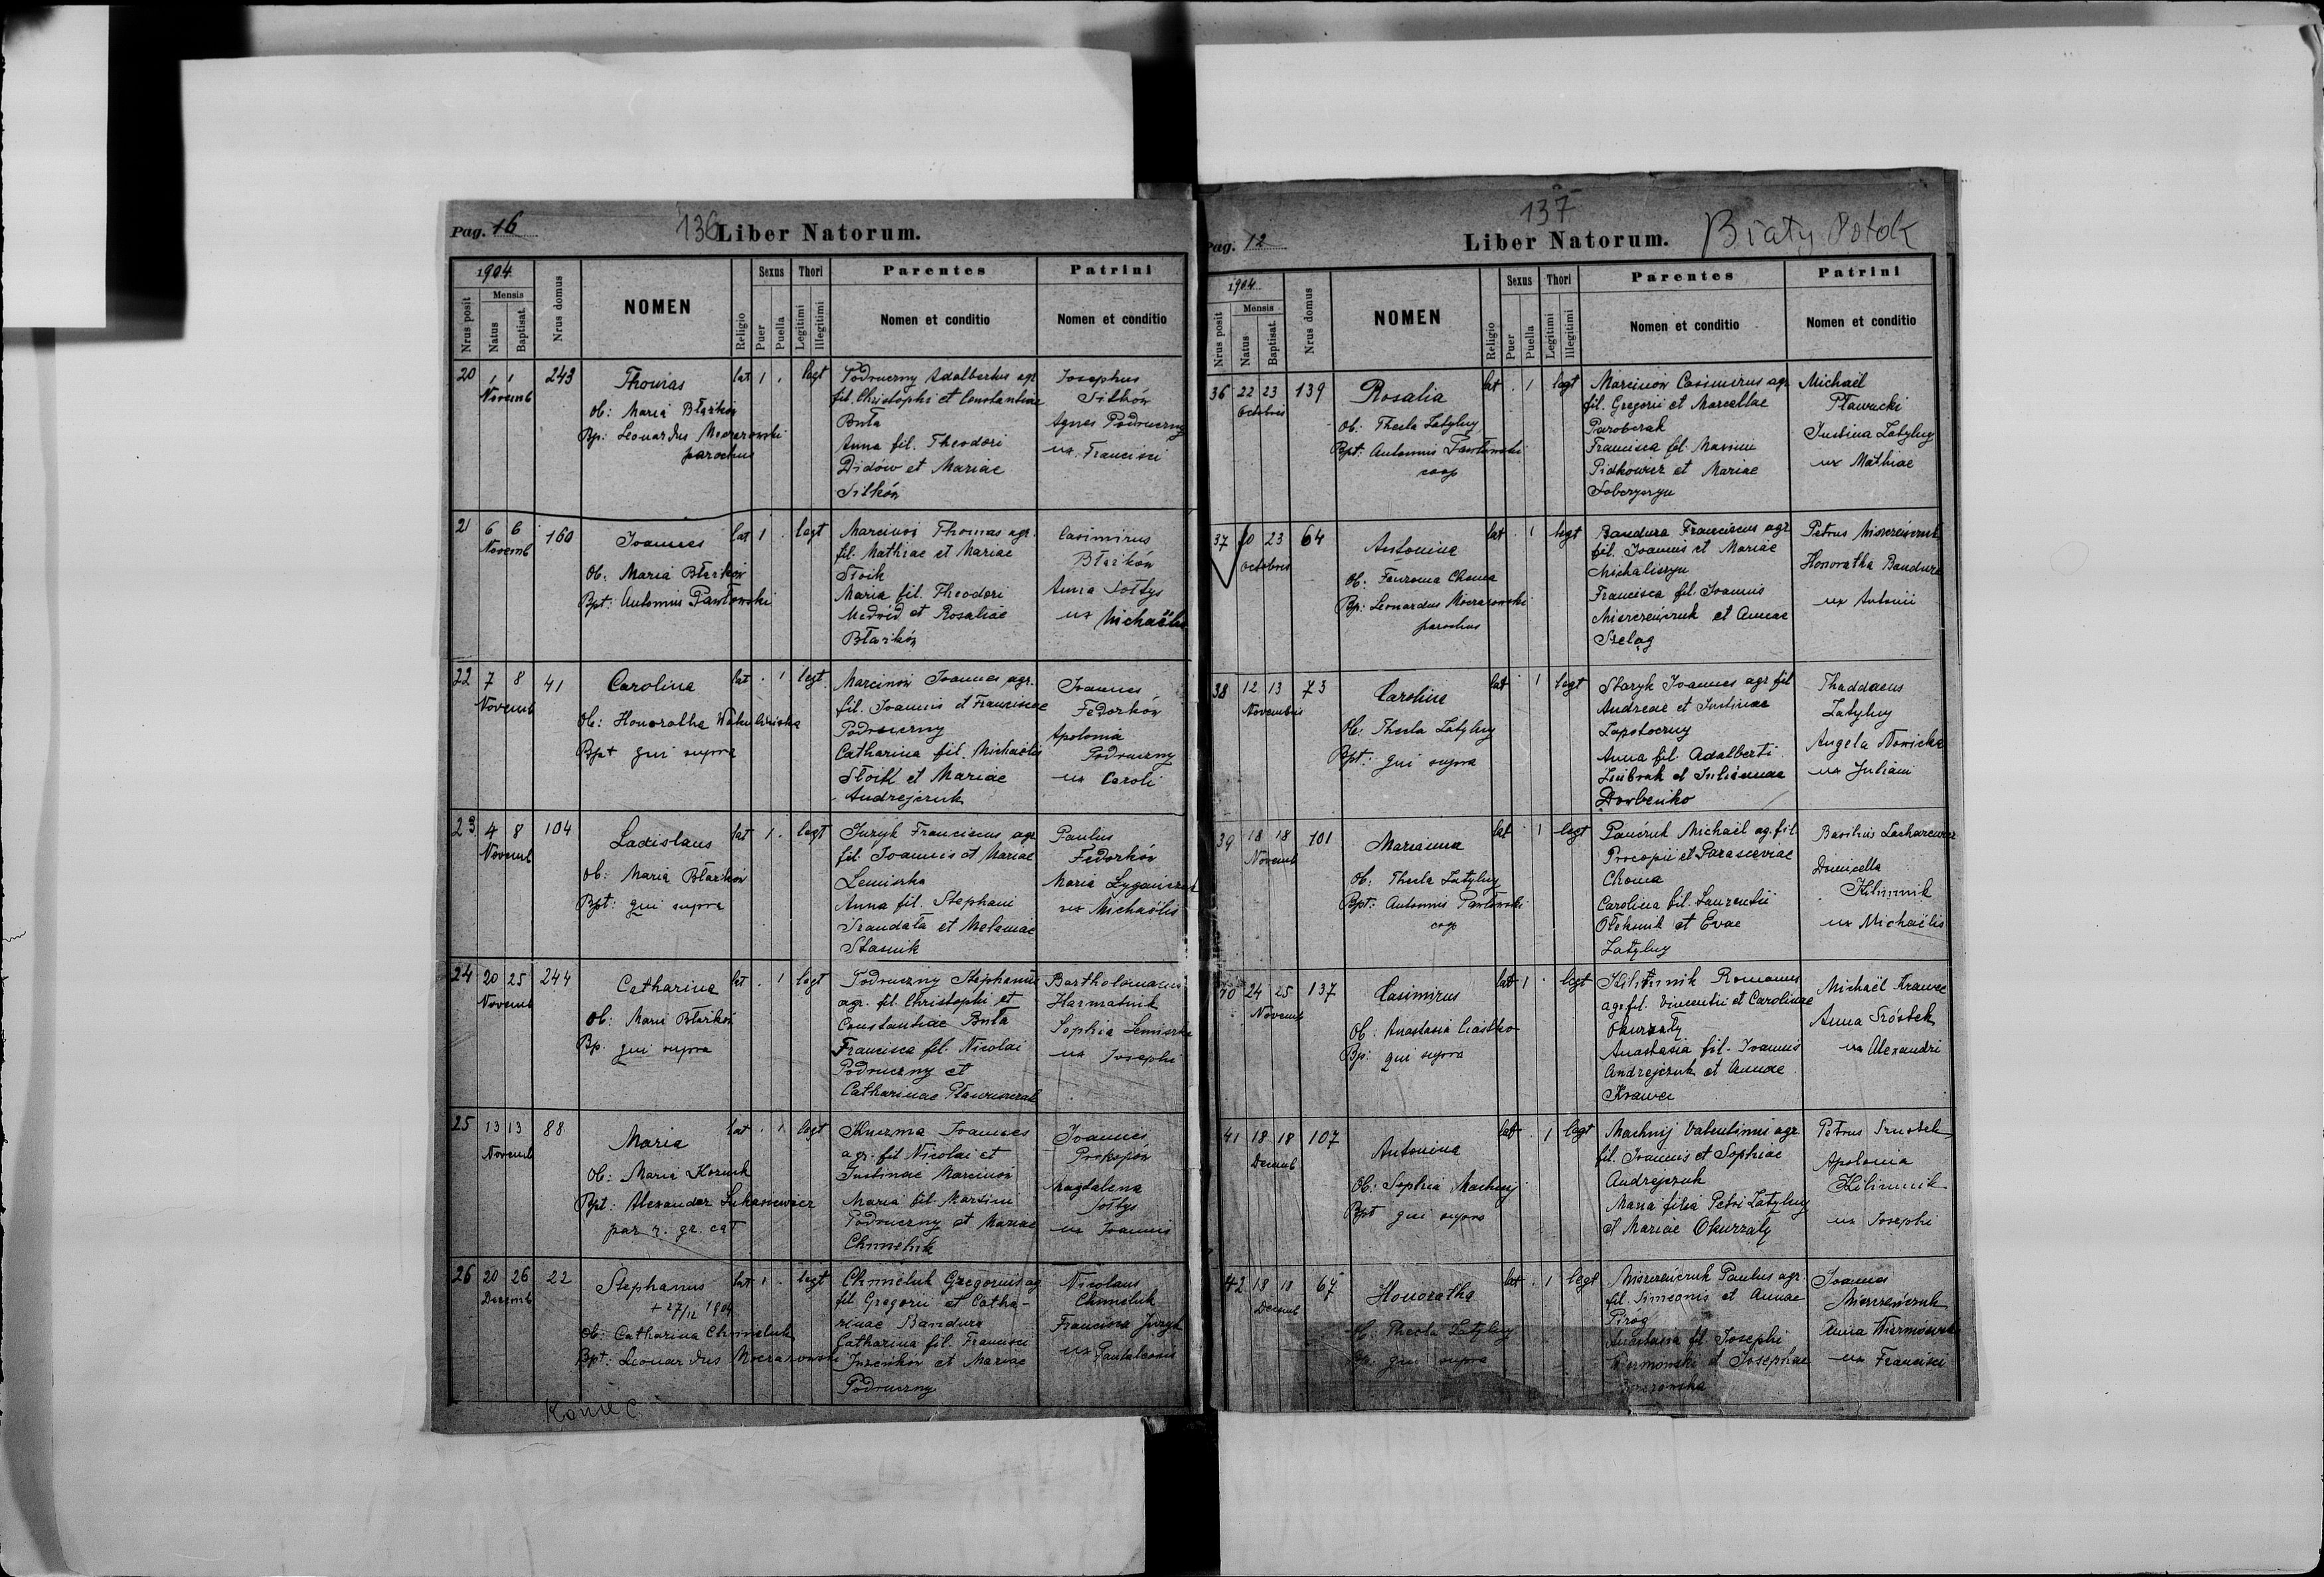 Pag. 16
136
Liber Natorum.
1904
Nrus posit
Mensis
Natus
Baptisat.
Nrus domus
NOMEN
Religio
Sexus
Puer
Puella
Thori
Legitimi
Illegitimi
Parentes
Nomen et conditio
Patrini
Nomen et conditio
20 1 1 243 Thomas lat 1 . legt
Novemb
Ob: Maria Błażków
Bp: Leonardus Moczarowski
parochus
Podruczny Adalbertus agr
fil. Christophi et Constantiae
Buła
Anna fil. Theodori
Didów et Mariae
Sitków
Josephus
Sitków
Agnes Podruczny
ux. Francisci
21 6 6 160 Joannes lat 1 . legt
Novemb
Ob: Maria Błażków
Bpt: Antonius Pawłowski
Marcinów Thomas agr.
fil. Mathiae et Mariae
Stoik
Maria fil. Theodori
Medwid et Rosaliae
Błażków
Casimirus
Błażków
Anna Sołtys
ux Michaëlis
22 7 8 41 Carolina lat . 1 legt
Novemb
Ob: Honoratha
Bpt qui supra
Marcinów Joannes agr.
fil. Joannis et Franciscae
Podruczny
Catharina fil. Michaëlis
Stoik et Mariae
Andrejczuk
Joannes
Fedorków
Apolonia
Podruczny
ux Caroli
23 4 8 104 Ladislaus lat 1 . legt
Novemb
Ob: Maria Błażków
Bpt: qui supra
Juzyk Franciscus agr
fil. Joannis et Mariae
Lemiszka
Anna fil. Stephani
et Melaniae
Stasnik
Paulus
Fedorków
Maria
ux Michaëlis
24 20 25 244 Catharina lat . 1 legt
Novemb
Ob: Maria Błażków
Bp. qui supra
Podruczny Stephanus
agr. fil. Christophi et
Constantiae Buła
Francisca fil. Nicolai
Podruczny et
Catharinae
Bartholomaeus
Harmatnik
Sophia Lemiszka
ux Josephi
25 13 13 88 Maria lat . 1 legt
Novemb
Ob: Maria Kozuk
Bpt: Alexander Łukasiewicz
par r. gr. cat
Kuczma Joannes
agr. fil Nicolai et
Justinae Marcinów
Maria fil. Martini
Podruczny et Mariae
Chmeluk
Joannes
Prokopów
Magdalena
Sołtys
ux Joannis
26 20 26 22 Stephanus lat 1 . legt
Decemb
+ 27/12 1904
Ob: Catharina Chmeluk
Bpt: Leonardus Moczarowski
Chmeluk Gregorius ag
fil. Gregorii et Catha-
rinae Bandura
Catharina fil. Francisci
et Mariae
Podruczny
Nicolaus
Chmeluk
Francisca Juzyk
ux Pantaleonis
Koniec
Pag. 12
137
Liber Natorum.
Biały Potok
1904
Nrus posit
Mensis
Natus
Baptisat.
Nrus domus
NOMEN
Religio
Sexus
Puer
Puella
Thori
Legitimi
Illegitimi
Parentes
Nomen et conditio
Patrini
Nomen et conditio
36 22 23 139 Rosalia lat . 1 legt
Octobris
Ob: Thecla Zatylny
Bpt: Antonius Pawłowski
coop
Marcinów Casimirus agr
fil. Gregorii et Marcellae
Paroberak
Francisca fil. Maximi
Pidkowicz et Mariae
Michaël
Pławucki
Justina Zatylny
ux Mathiae
37 20 23 64 Antonina lat . 1 legt
Octobris
Ob: Choma
Bp: Leonardus Moczarowski
parochus
Bandura Franciscus agr
fil. Joannis et Mariae
Michaliszyn
Francisca fil. Joannis
Miszczeńczuk et Annae
Szeląg
Petrus Miszczeńczuk
Honoratha Bandura
ux Antonii
38 12 13 73 Carolina lat . 1 legt
Novembris
Ob: Thecla Zatylny
Bpt: qui supra
Staryk Joannes agr fil
Andreae et Justinae
Anna fil. Adalberti
et Juliannae
Thaddaeus
Zatylny
Angela Nowicka
ux Juliani
39 18 18 101 Marianna lat . 1 legt
Novemb
Ob: Thecla Zatylny
Bpt: Antonius Pawłowski
coop
Panczuk Michaël ag. fil.
Procopii et Parasceviae
Choma
Carolina fil. Laurentii
et Evae
Zatylny
Basilius
Domicella
Kilimnik
ux Michaëlis
40 24 25 137 Casimirus lat 1 . legt
Novemb
Ob: Anastasia Ciastko
Bp: qui supra
Kilimnik Romanus
agr fil. Vincentii et Carolinae
Okurzały
Anastasia fil. Joannis
Andrejczuk et Annae
Krawec
Michaël Krawec
Anna Szóstek
ux Alexandri
41 18 18 107 Antonina lat . 1 legt
Decemb
Ob: Sophia Machnij
Bpt qui supra
Machnij Valentinus agr
fil. Joannis et Sophiae
Andrejczuk
Maria filia Petri Zatylny
et Mariae Okurzały
Petrus
Apolonia
Kilimnik
ux Josephi
42 18 18 67 Honoratha lat . 1 legt
Decemb
Ob: Thecla Zatylny
Bp: qui supra
Miszczeńczuk Paulus agr.
fil. Simeonis et Annae
Pirog
Anastasia fil. Josephi
et Josephae
Joannes
Miszczeńczuk
Anna
ux Francisci